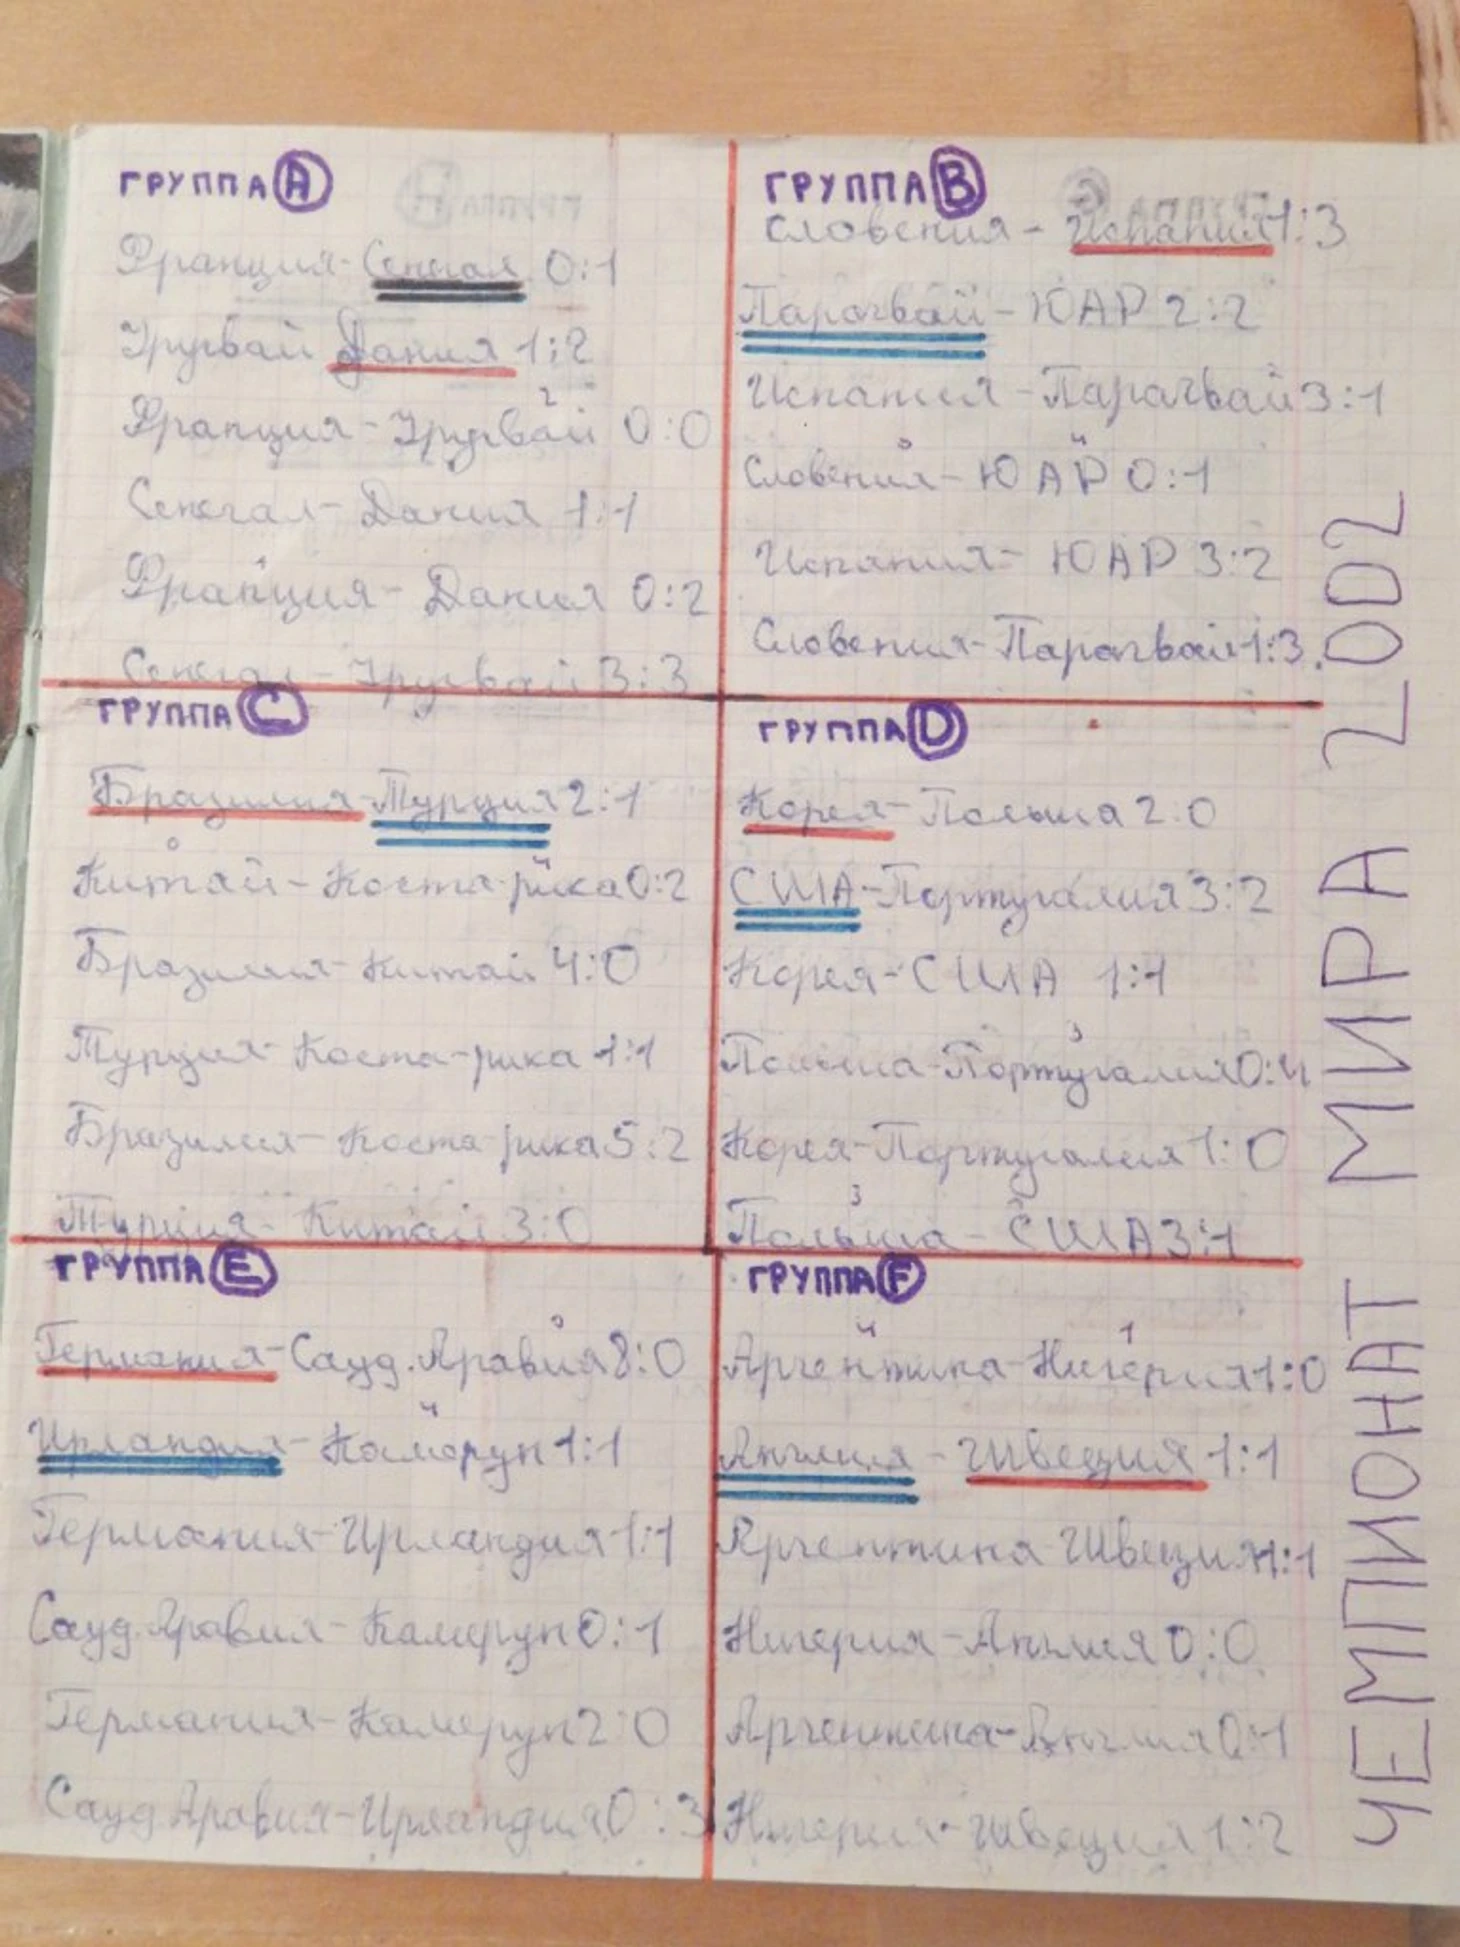 ГРУППА A
Франция - Сенегал 0:1
Уругвай Дания 1:2
2
Франция - Уругвай 0:0
Сенегал - Дания 1:1
Франция - Дания 0:2
Сенегал - Уругвай 3:3
ГРУППА B
Словения - Испания 1:3
Парагвай - ЮАР 2:2
Испания - Парагвай 3:1
0 4
Словения - ЮАР 0:1
Испания - ЮАР 3:2
Словения - Парагвай 1:3
ГРУППА C
Бразилия - Турция 2:1
0 4
Китай - Коста-рика 0:2
Бразилия - Китай 4:0
Турция - Коста-рика 1:1
Бразилия - Коста-рика 5:2
Турция - Китай 3:0
ГРУППА D
Корея - Польша 2:0
США - Португалия 3:2
Корея - США 1:1
3
Польша - Португалия 0:4
Корея - Португалия 1:0
3
Польша - США 3:1
ГРУППА E
0
Германия - Сауд. Аравия 8:0
4
Ирландия - Камерун 1:1
Германия - Ирландия 1:1
Сауд. Аравия - Камерун 0:1
Германия - Камерун 2:0
Сауд Аравия - Ирландия 0:3
ГРУППА F
4 1
Аргентина - Нигерия 1:0
Англия - Швеция 1:1
Аргентина Швеция 1:1
Нигерия - Англия 0:0
Аргентина - Англия 0:1
Нигерия - Швеция 1:2
ЧЕМПИОНАТ МИРА 2002